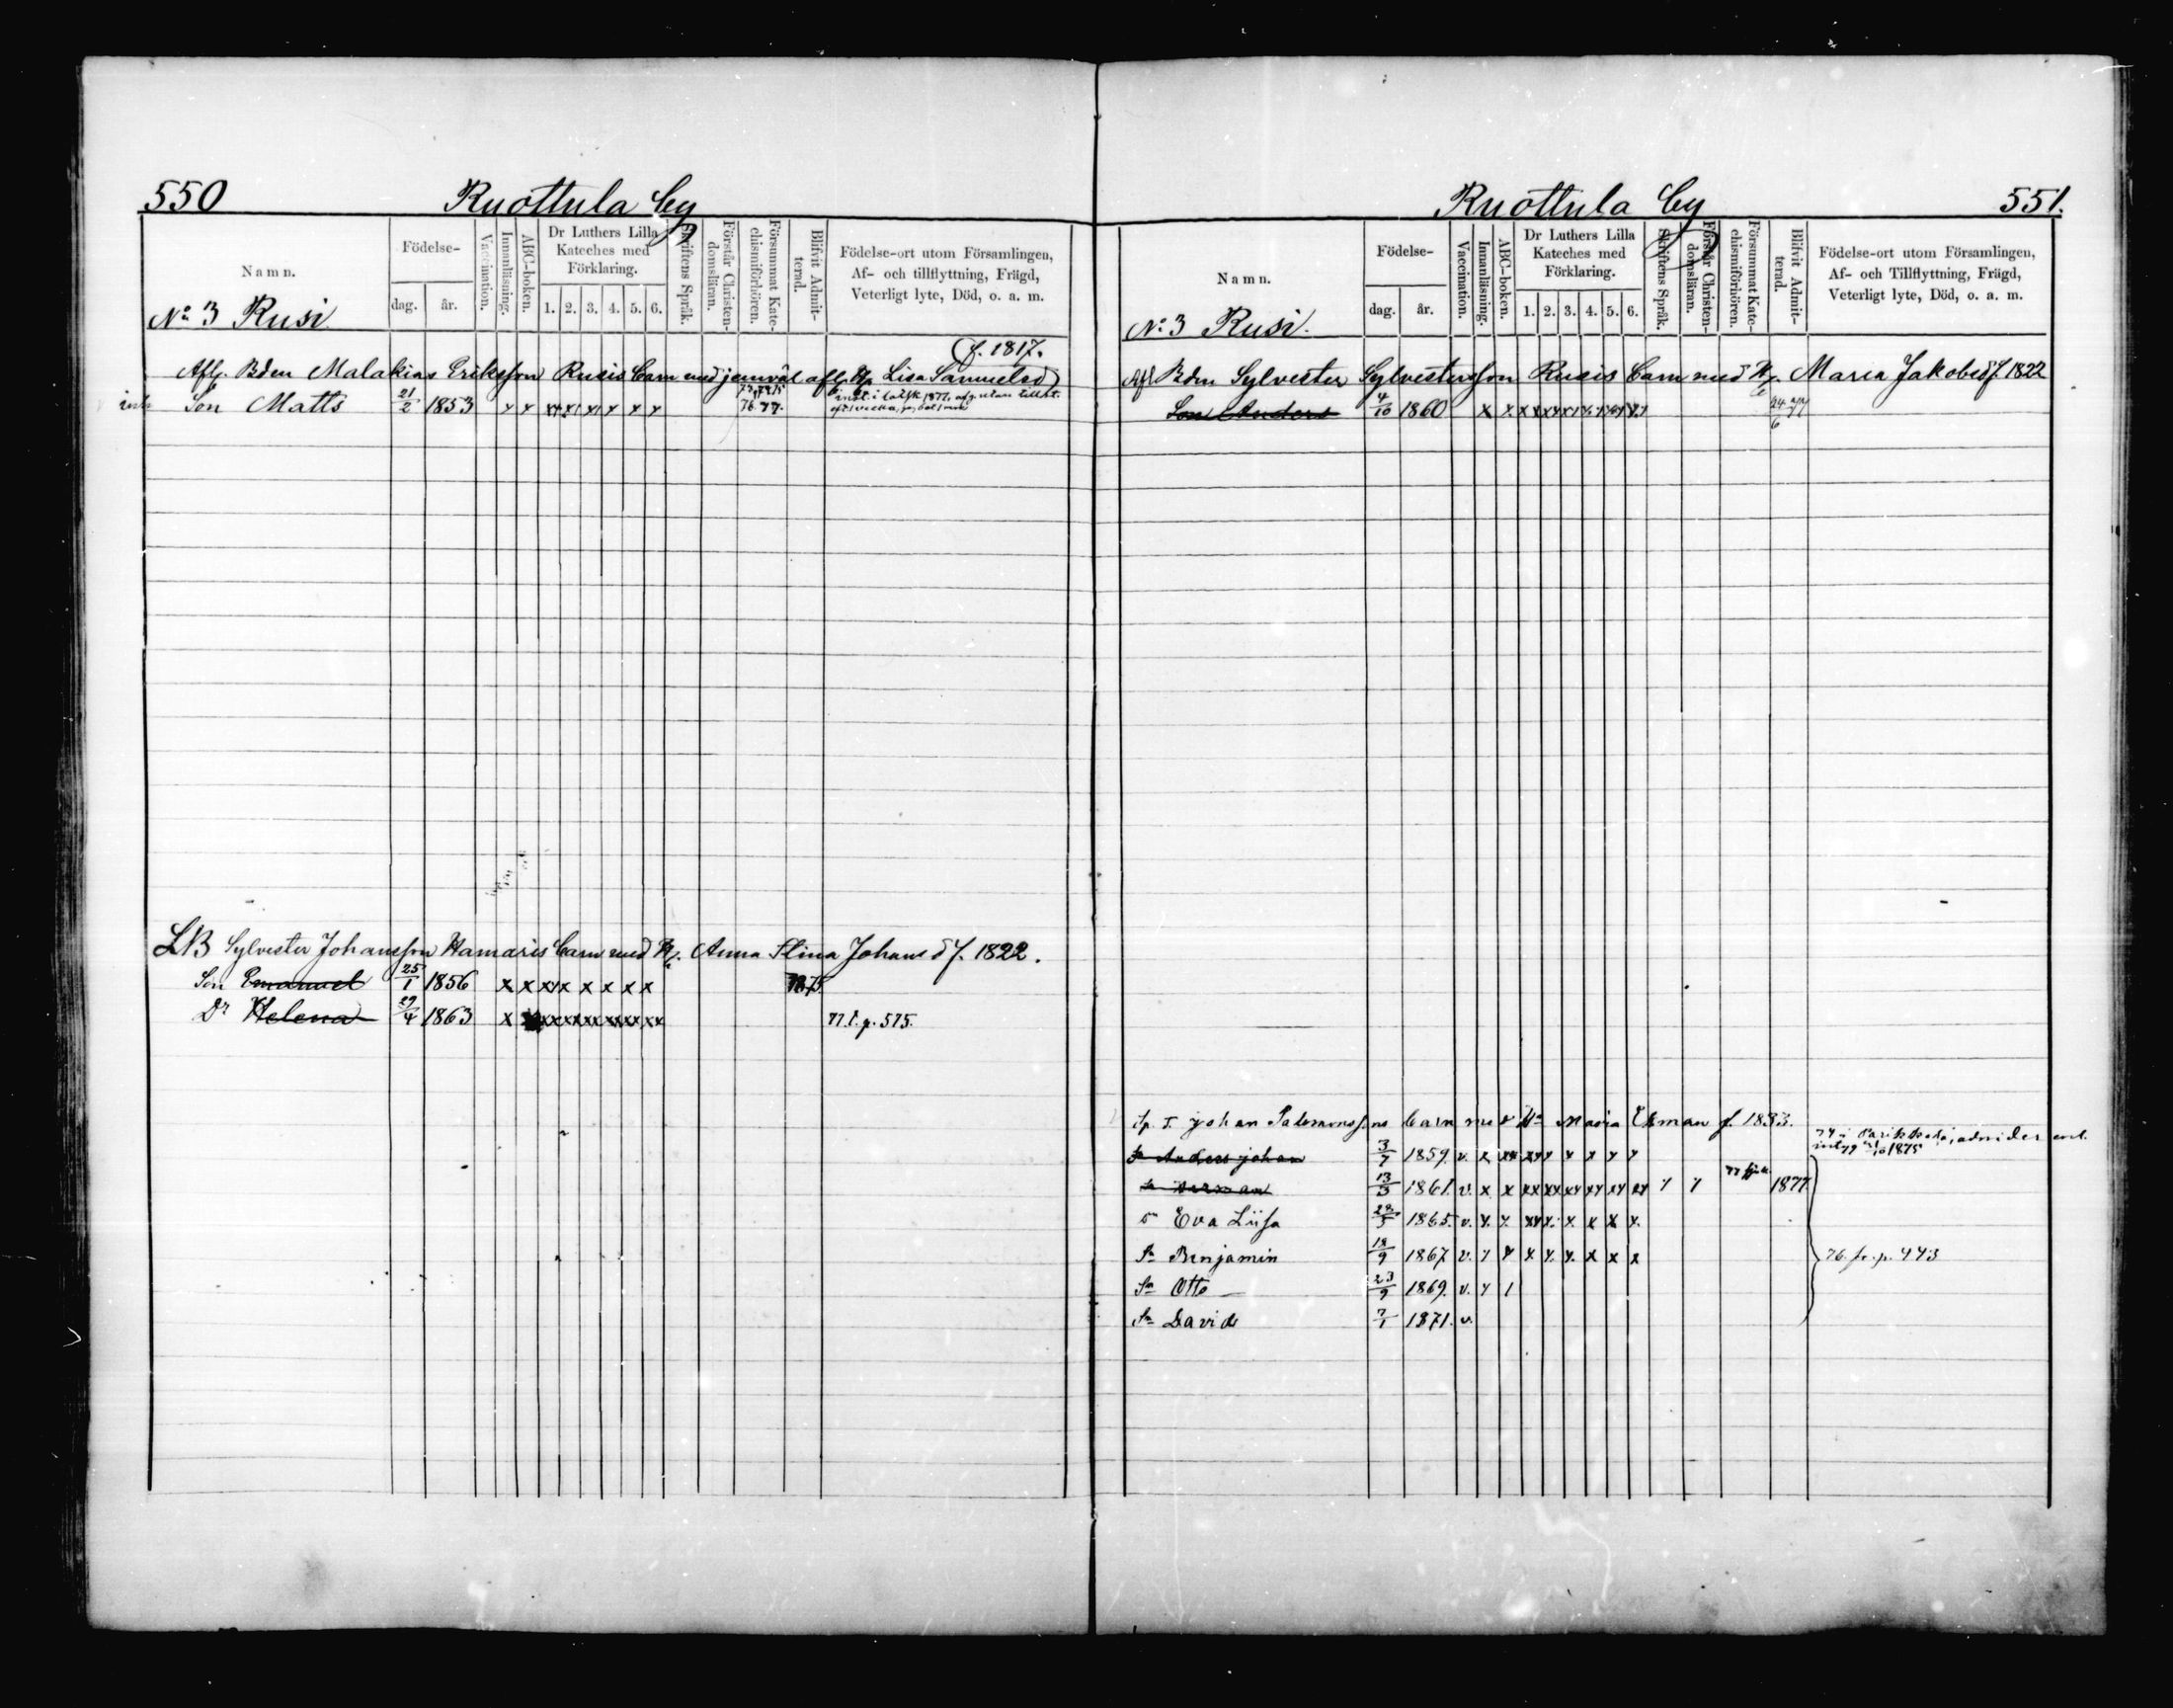 550 Ruottula by
Namn.
Födelse-
dag. år.
Vaccination.
Innanläsning.
ABC-boken.
Dr Luthers Lilla Kateches med Förklaring.
1. 2. 3. 4. 5. 6.
Skriftens Språk.
Förstår Christendomsläran.
Försummat Katechismiförhören.
Blifvit Admitterad.
Födelse-ort utom Församlingen,
Af- och tillflyttning, Frägd,
Veterligt lyte, Död, o. a. m.
No 3 Rusi
f. 1817.
Afl. Bden Malakias Eriksson Rusis barn med jemväl afl. H. Lisa Samuelsd
Son Matts 21/2 1853 76. 77.
LB Sylvester Johansson Hamaris barn med H. Anna Stina Johansd f. 1822.
Son Emanuel 25/1 1856 x x xx x x x x 1875
Dr Helena 29/4 1863 x 77 t. p. 575.
Ruottula by 551.
Namn.
Födelse-
dag. år.
Vaccination.
Innanläsning.
ABC-boken.
Dr Luthers Lilla Kateches med Förklaring.
1. 2. 3. 4. 5. 6.
Skriftens Språk.
Förstår Christendomsläran.
Försummat Katechismiförhören.
Blifvit Admitterad.
Födelse-ort utom Församlingen,
Af- och Tillflyttning, Frägd,
Veterligt lyte, Död, o. a. m.
No 3 Rusi.
Afl Bden Sylvester Sylvestersson Rusis barn med H. Maria Jakobsd f. 1822
Son Anders 4/10 1860 24/6 77
Johan Salomonssons barn med Ha Maria Ekman f. 1833.
Sn Anders Johan 3/7 1859. v.
Sn Herman 13/3 1861. v. 1877
Dr Eva Liisa 28/5 1865. v.
Sn Benjamin 18/9 1867 v. 76. fr. p. 443
Sn Otto 23/9 1869. v.
Sn David 7/1 1871. v.